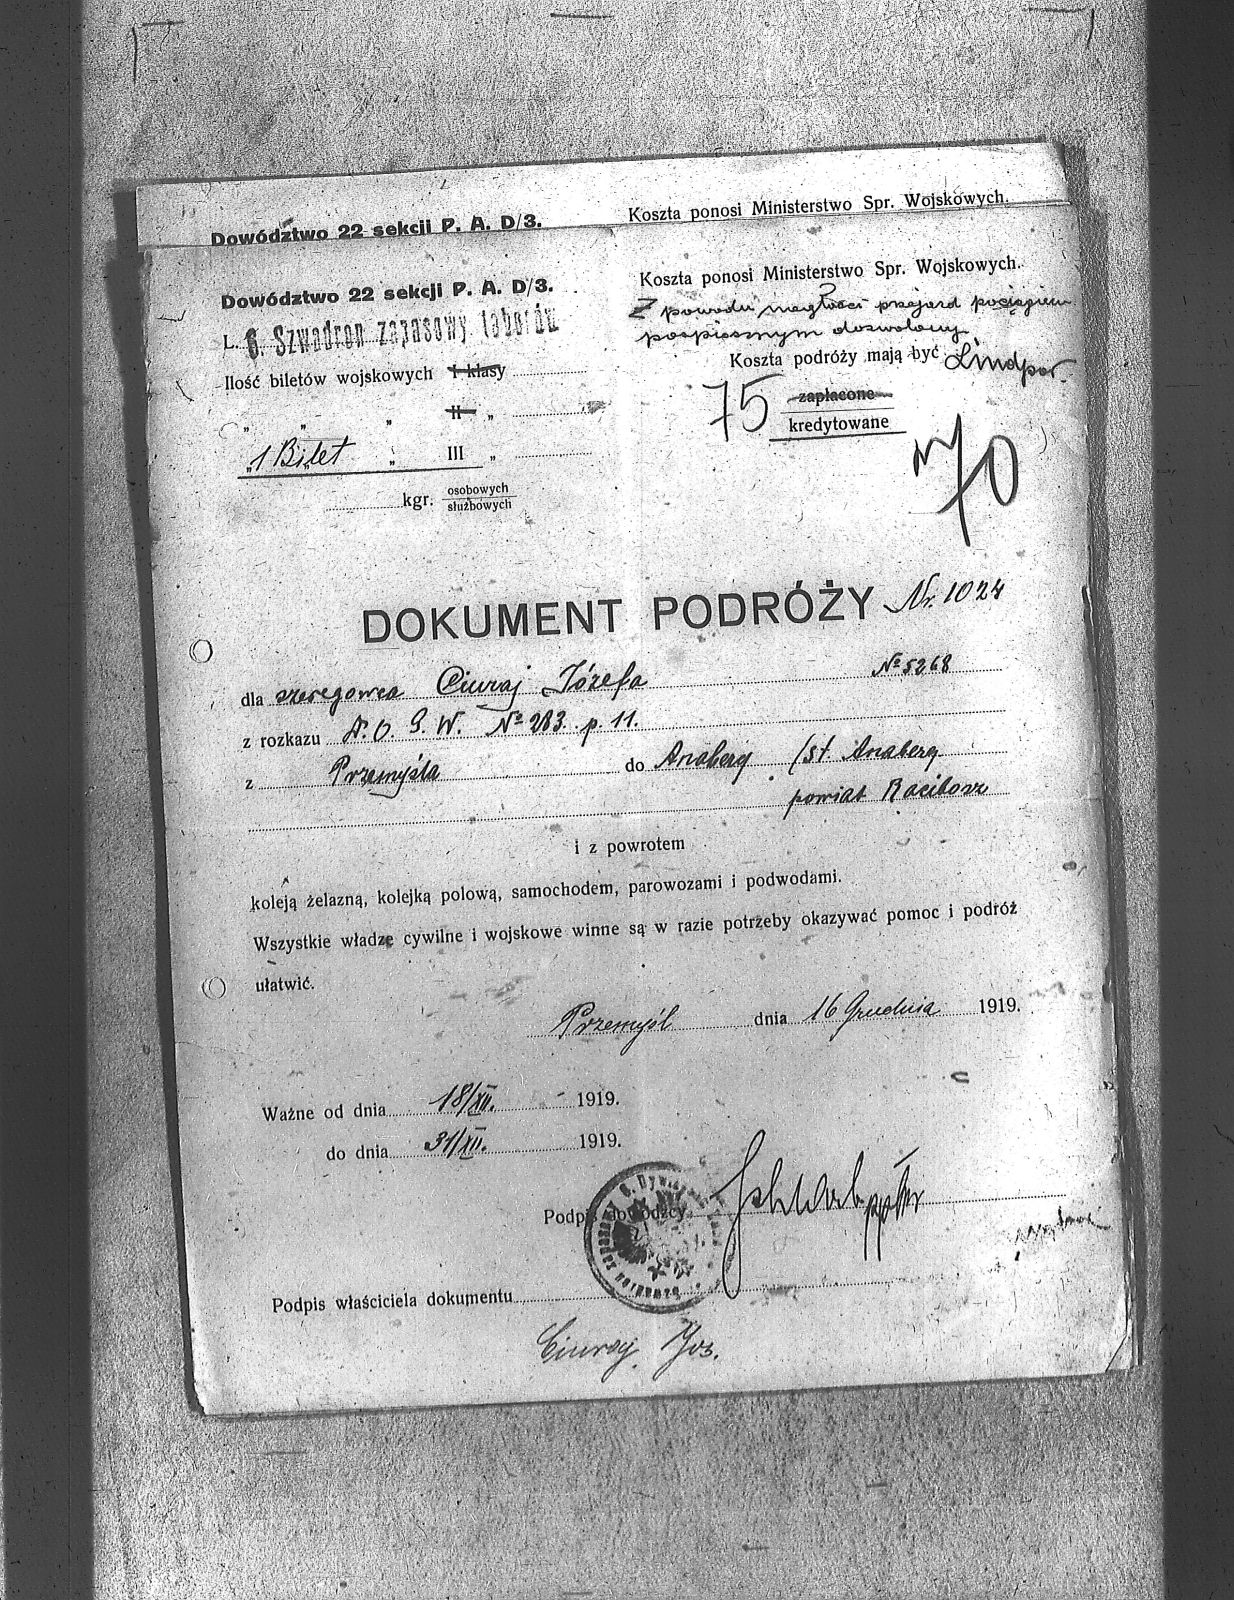 Dowództwo 22 sekcji P. A. D/3. Koszta ponosi Ministerstwo Spr. Wojskowych.
Dowództwo 22 sekcji P. A. D/3. Koszta ponosi Ministerstwo Spr. Wojskowych.
Z powodu nagłości przejazd pociągiem
L. 6. Szwadron zapasowy taborów pospiesznym dozwolony.
Koszta podróży mają być
Ilość biletów wojskowych I klasy zapłacone
75 kredytowane
„ „ „ II „
„1 Bilet „ III „ 70
kgr. osobowych
służbowych
DOKUMENT PODRÓŻY Nr. 1024
dla szeregowca Ciuraj Józefa № 5268
z rozkazu D. O. G. W. № 283. p. 11.
z Przemyśla do Anaberg /st. Anaberg
powiat Racibórz
i z powrotem
koleją żelazną, kolejką polową, samochodem, parowozami i podwodami.
Wszystkie władze cywilne i wojskowe winne są w razie potrzeby okazywać pomoc i podróż
ułatwić.
Przemyśl dnia 16 Grudnia 1919.
Ważne od dnia 18/XII. 1919.
do dnia 31/XII. 1919.
Podpis dowódcy
Podpis właściciela dokumentu
Ciuraj Joz.